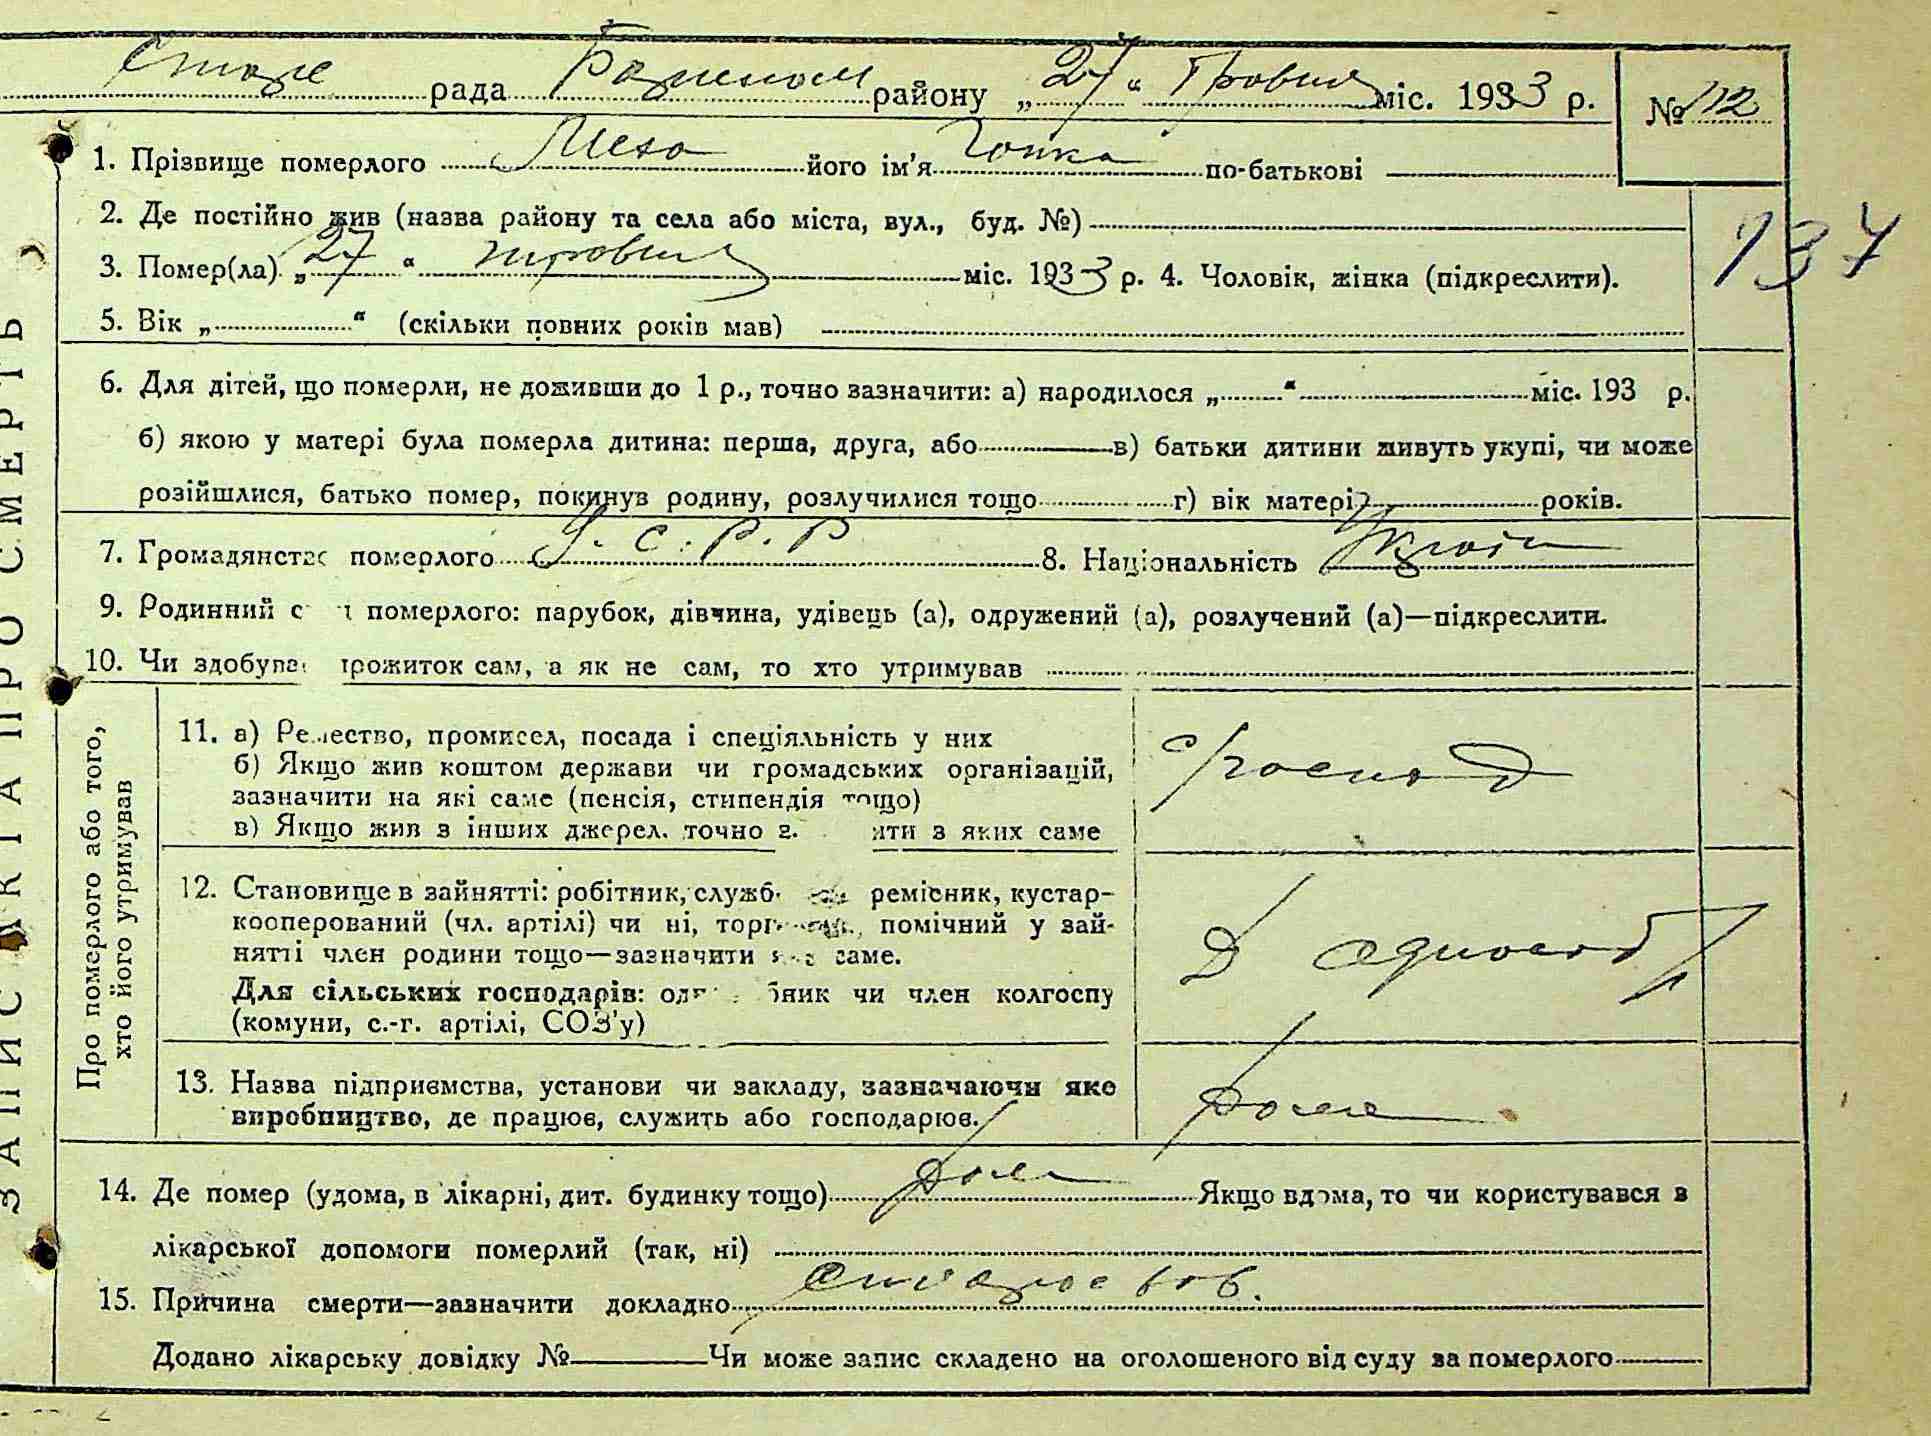 рада району „27“ міс. 1933 р. № 112
1. Прізвище померлого його ім'я по-батькові
2. Де постійно жив (назва району та села або міста, вул., буд. №)
137
3. Помер(ла) „27“ міс. 1933 р. 4. Чоловік, жінка (підкреслити).
5. Вік „ “ (скільки повних років мав)
6. Для дітей, що померли, не доживши до 1 р., точно зазначити: а) народилося „ “ міс. 193 р.
б) якою у матері була померла дитина: перша, друга, або в) батьки дитини живуть укупі, чи може
розійшлися, батько помер, покинув родину, розлучилися тощо г) вік матері років.
7. Громадянство померлого У.С.Р.Р 8. Національність Україн
9. Родинний померлого: парубок, дівчина, удівець (а), одружений (а), розлучений (а)—підкреслити.
10. Чи здобував прожиток сам, а як не сам, то хто утримував
ЗАПИС АКТА ПРО СМЕРТЬ
Про померлого або того,
хто його утримував
11. а) Ремество, промисел, посада і спеціяльність у них
б) Якщо жив коштом держави чи громадських організацій,
зазначити на які саме (пенсія, стипендія тощо)
в) Якщо жив з інших джерел, точно з яких саме
12. Становище в зайнятті: робітник, ремісник, кустар-
кооперований (чл. артілі) чи ні, помічний у зай-
нятті член родини тощо—зазначити саме.
Для сільських господарів: чи член колгоспу
(комуни, с.-г. артілі, СОЗ'у)
13. Назва підприємства, установи чи закладу, зазначаючи яке
виробництво, де працює, служить або господарює.
14. Де помер (удома, в лікарні, дит. будинку тощо) дома Якщо вдома, то чи користувався в
лікарської допомоги померлий (так, ні)
15. Причина смерти—зазначити докладно
Додано лікарську довідку № Чи може запис складено на оголошеного від суду за померлого